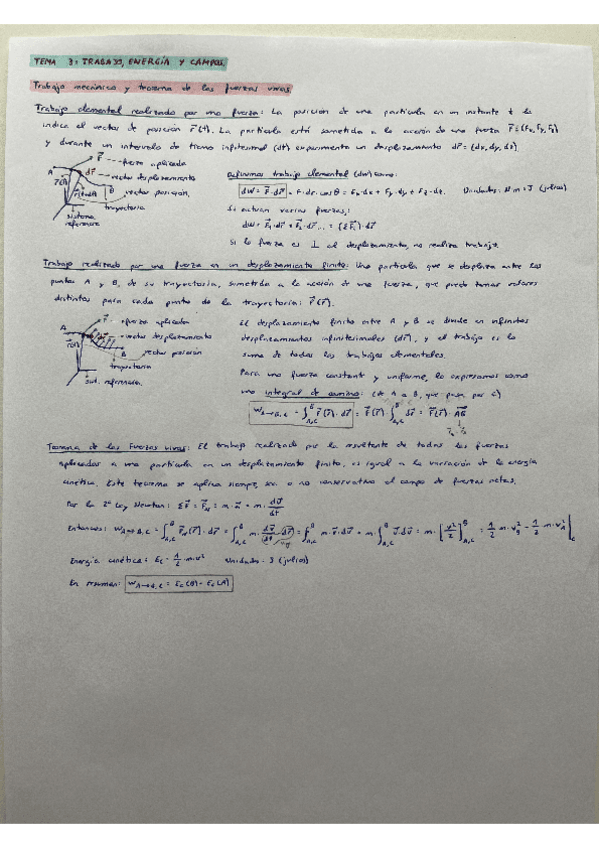 TEMA 3: TRABAJO, ENERGÍA Y CAMPOS
Trabajo mecánico y teorema de las fuerzas vivas
Trabajo elemental realizado por una fuerza: La posición de una partícula en un instante t la
indica el vector de posición r⃗(t). La partícula está sometida a la acción de una fuerza F⃗=(Fx,Fy,Fz)
y durante un intervalo de tiempo infinitesimal (dt) experimenta un desplazamiento dr⃗=(dx,dy,dz)
F⃗ fuerza aplicada
A dr⃗ vector desplazamiento
B vector posición
trayectoria
Sistema
referencia
Definimos trabajo elemental (dw) como:
dW = F⃗·dr⃗ = F·dr·cosθ = Fx·dx + Fy·dy + Fz·dz. Unidades: N·m = J (julios)
Si actúan varias fuerzas:
dW = F⃗1·dr⃗ + F⃗2·dr⃗ ... = (ΣF⃗i)·dr⃗
Si la fuerza es ⊥ al desplazamiento, no realiza trabajo.
Trabajo realizado por una fuerza en un desplazamiento finito: Una partícula que se desplaza entre los
puntos A y B, de su trayectoria, sometida a la acción de una fuerza, que puede tomar valores
distintos para cada punto de la trayectoria: F⃗(r⃗).
F⃗ fuerza aplicada
A vector desplazamiento
B vector posición
trayectoria
sist. referencia.
El desplazamiento finito entre A y B se divide en infinitos
desplazamientos infinitesimales (dr⃗), y el trabajo es la
suma de todos los trabajos elementales.
Para una fuerza constante y uniforme, lo expresamos como
una integral de camino: (de A a B, que pasa por C)
W A→B,C = ∫A,C^B F⃗(r⃗)·dr⃗ = F⃗(r⃗) ∫A,C^B dr⃗ = F⃗(r⃗)·AB⃗
Teorema de las Fuerzas vivas: El trabajo realizado por la resultante de todas las fuerzas
aplicadas a una partícula en un desplazamiento finito, es igual a la variación de la energía
cinética. Este teorema se aplica siempre, sea o no conservativo el campo de fuerzas netas.
Por la 2ª Ley Newton: ΣF⃗ = F⃗N = m·a⃗ = m·dv⃗/dt
Entonces: W A→B,C = ∫A,C^B F⃗N(r⃗)·dr⃗ = ∫A,C^B m·dv⃗/dt·dr⃗ = ∫A,C^B m·v⃗·dv⃗ = m·∫A,C^B v⃗·dv⃗ = m·[v²/2]A,C^B = 1/2 m·v²B − 1/2 m·v²A |C
Energía cinética: Ec = 1/2·m·v² Unidades: J (julios)
En resumen: W A→B,C = Ec(B) - Ec(A)